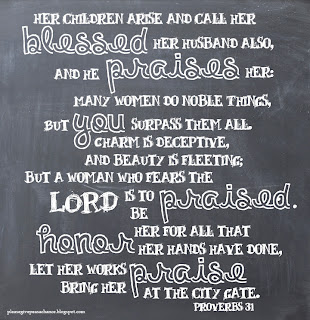 HER CHILDREN ARISE AND CALL HER
blessed HER HUSBAND ALSO,
AND HE praises HER:
MANY WOMEN DO NOBLE THINGS,
BUT you SURPASS THEM ALL.
CHARM IS DECEPTIVE,
AND BEAUTY IS FLEETING;
BUT A WOMAN WHO FEARS THE
LORD IS TO BE praised.
honor HER FOR ALL THAT
HER HANDS HAVE DONE,
LET HER WORKS
BRING HER praise AT THE CITY GATE.
PROVERBS 31
pleasegivepeasachance.blogspot.com